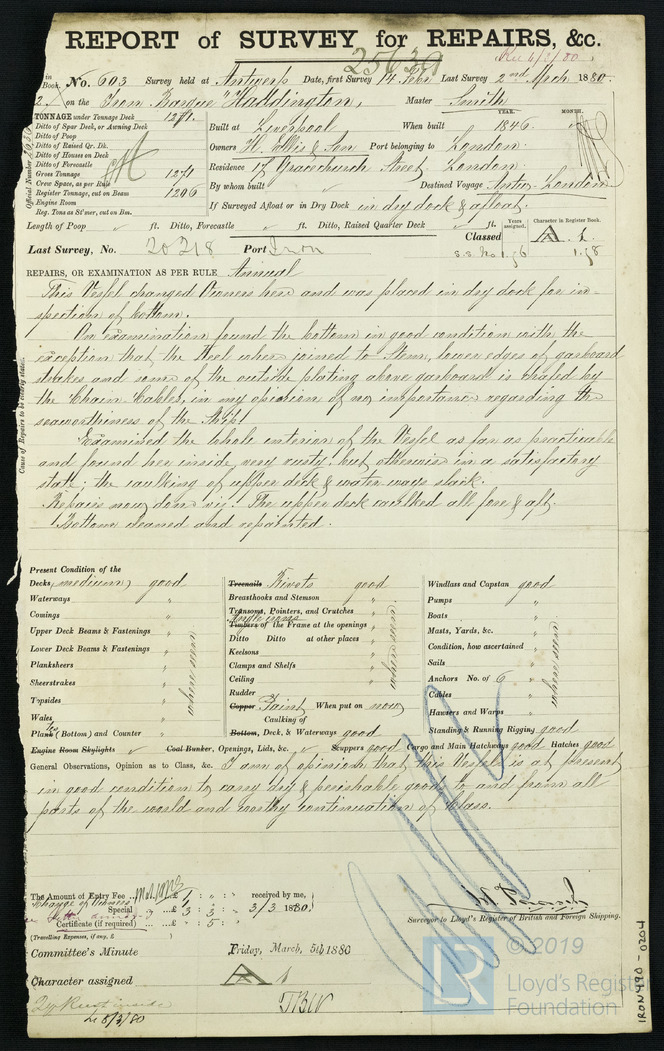 REPORT of SURVEY for REPAIRS, &c.
25639
in Book. No. 603 Survey held at Antwerp Date, first Survey 14 Feb Last Survey 2nd Mch 1880.
on the Iron Barque "Haddington, Master Smith
TONNAGE under Tonnage Deck 1271.
Ditto of Spar Deck, or Awning Deck
Ditto of Poop
Ditto of Raised Qr. Dk.
Ditto of Houses on Deck
Ditto of Forecastle
Gross Tonnage 1271
Crew Space, as per Rule
Register Tonnage, cut on Beam 1206
Engine Room
Reg. Tons as St'mer, cut on Bm.
Official Number
YEAR. MONTH.
Built at Liverpool When built 1846.
Owners H. Ellis & Son Port belonging to London.
Residence 17 Gracechurch Street London.
By whom built Destined Voyage Antw. London
If Surveyed Afloat or in Dry Dock in dry dock & afloat.
Length of Poop ft. Ditto, Forecastle ft. Ditto, Raised Quarter Deck ft.
Years assigned. Character in Register Book.
Classed A 1.
Last Survey, No. 20218 Port Iron
REPAIRS, OR EXAMINATION AS PER RULE Annual
Cause of Repairs to be clearly stated.
This Vessel changed Owners here and was placed in dry dock for in-
spection of bottom.
On examination found the bottom in good condition with the
exception that the Keel where joined to Stem, lower edges of garboard
strakes and some of the outside plating above garboard is chafed by
the Chain Cables, in my opinion of no importance regarding the
seaworthiness of the Ship!
Examined the whole interior of the Vessel as far as practicable
and found her inside very rusty: but otherwise in a satisfactory
state; the caulking of upper deck & water ways slack.
Repairs now done viz: The upper deck caulked all fore & aft.
Bottom cleaned and repainted.
Present Condition of the
Decks, medium, good
Waterways "
Comings "
Upper Deck Beams & Fastenings "
Lower Deck Beams & Fastenings "
Planksheers "
Sheerstrakes "
Topsides "
Wales "
Plates (Bottom) and Counter "
where seen
Treenails Rivets good
Breasthooks and Stemson "
Transoms, Pointers, and Crutches "
Angle irons
Timbers of the Frame at the openings "
Ditto Ditto at other places "
Keelsons "
Clamps and Shelfs "
Ceiling "
Rudder "
where seen
Copper Paint When put on now
Caulking of
Bottom, Deck, & Waterways good
Windlass and Capstan good
Pumps "
Boats "
Masts, Yards, &c. "
Condition, how ascertained "
Sails "
Anchors No. of 6 "
Cables "
Hawsers and Warps "
where seen
Standing & Running Rigging good
Engine Room Skylights Coal Bunker, Openings, Lids, &c. Scuppers good Cargo and Main Hatchways good Hatches good
General Observations, Opinion as to Class, &c. I am of opinion that this Vessel is at present
in good condition to carry dry & perishable goods to and from all
parts of the world and worthy continuation of Class.
The Amount of Entry Fee £ 1 : " : " received by me,
Change of Owners
Special £ 3 : 3 : " 3/3 1880.
Certificate (if required) £ " : 5 : "
(Travelling Expenses, if any, £ )
Surveyor to Lloyd's Register of British and Foreign Shipping.
Committee's Minute Friday, March, 5th 1880
Character assigned A 1
TBW
Rust inside
5/3/80
© 2019
LR
Lloyd's Register
Foundation
IRON490-0204